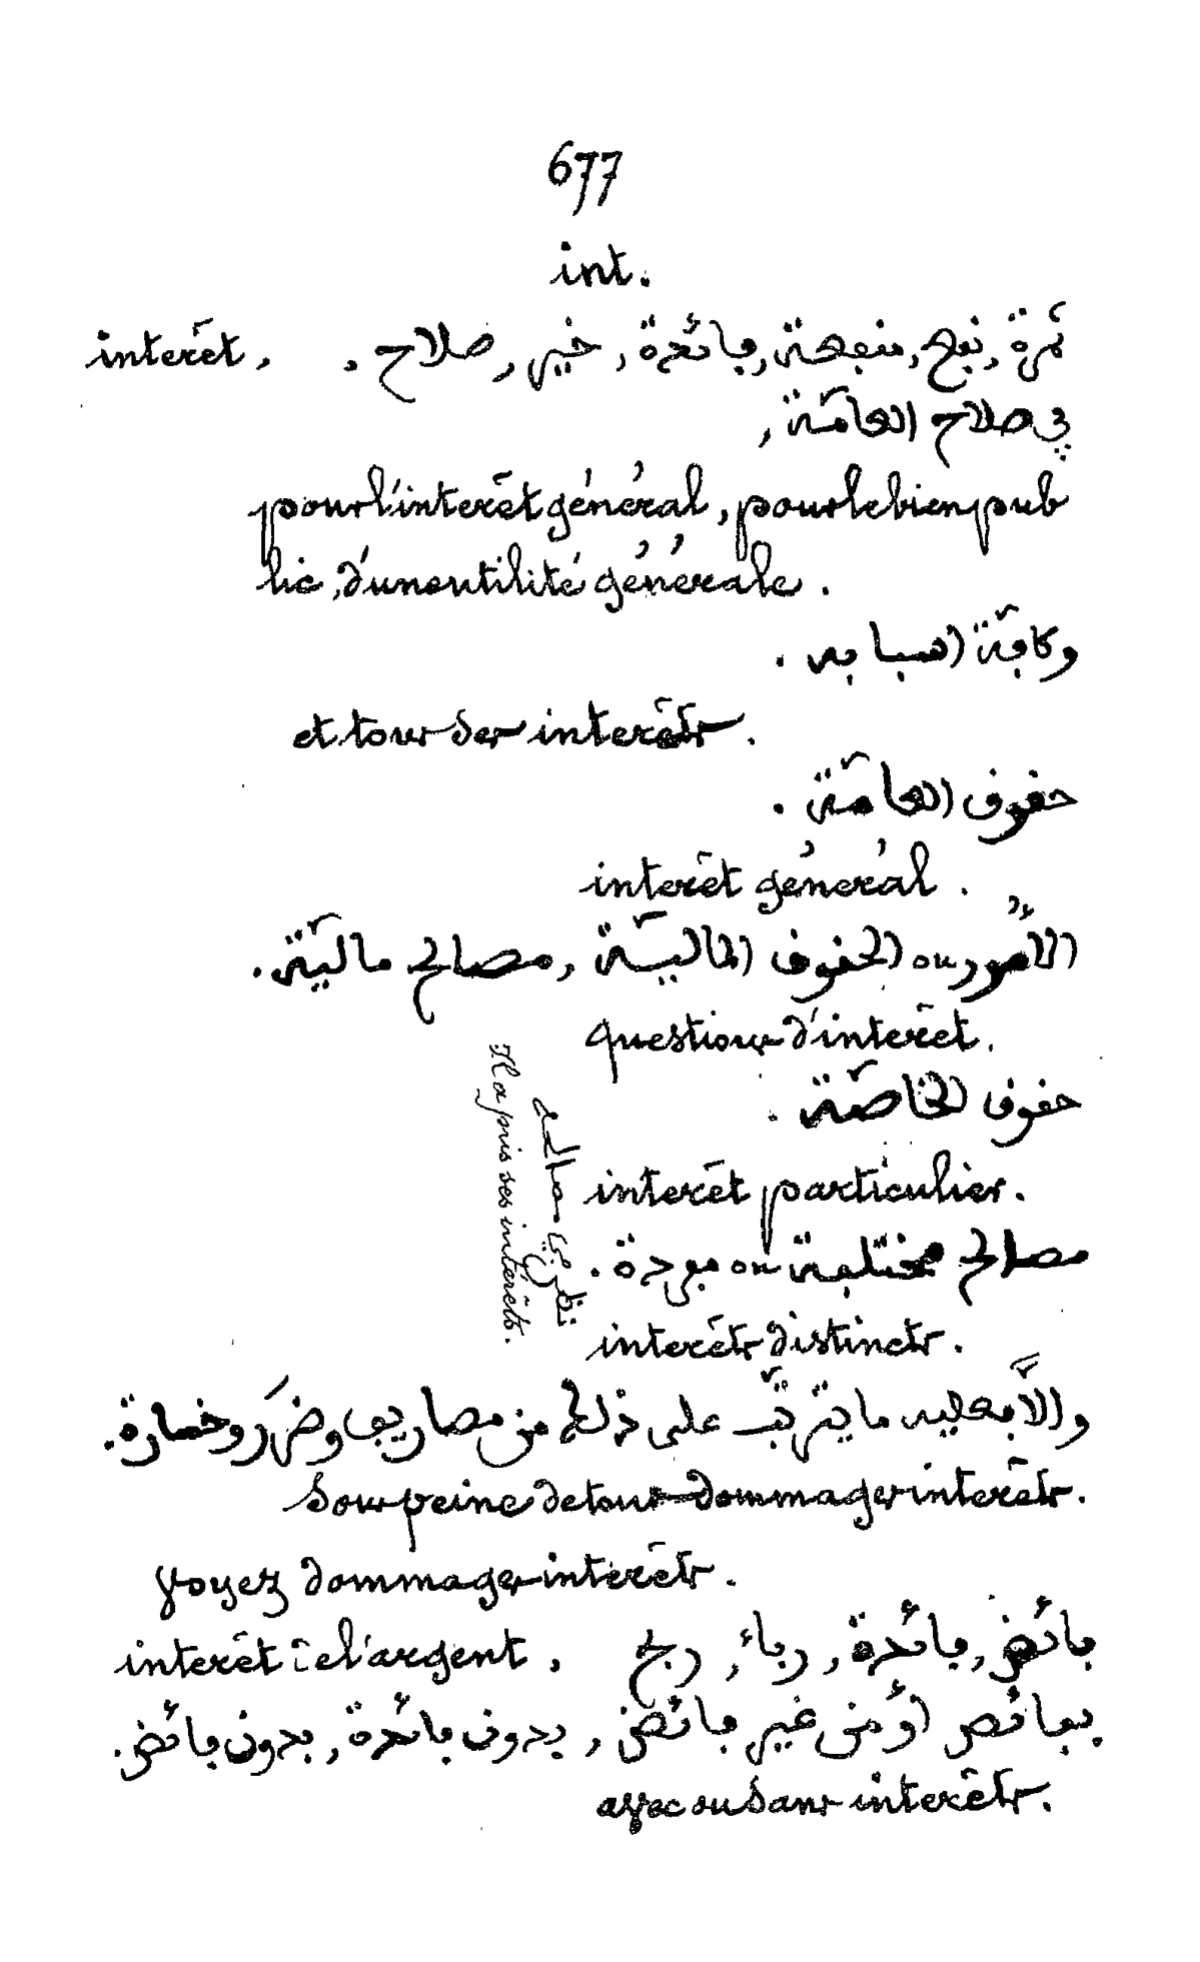 677
int.
interêt, ثمرة, نفع, منفعة, فائدة, خير, صلاح.
في صلاح العامّة,
pour l'interêt général, pour le bien pub
lic, d'une utilité générale.
وكافّة اسبابه.
et tous ses interêts.
حقوق العامّة.
interêt général.
الأُمور ou الحقوق الماليّة, مصالح ماليّة.
questions d'interêt.
حقوق الخاصّة.
interêt particulier.
مصالح مختلفة ou مفردة.
interêts distincts.
نظر في مصالحه
Il a pris ses interêts.
والّا فعليه ما يترتّب على ذلك من مصاريف وضرَر وخسارة.
sous peine de tous dommages interêts.
voyez dommages interêts.
interêt de l'argent, فائض, فائدة, رباء, ربح
بفائض أو من غير فائض, بدون فائدة, بدون فائض.
avec ou sans interêts.